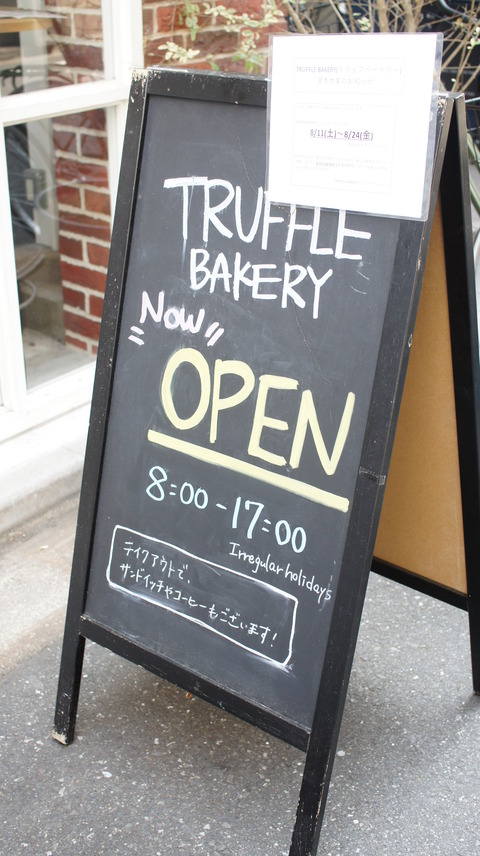 TRUFFLE BAKERY
8/11(土)～8/24(金)
TRUFFLE
BAKERY
Now
OPEN
8:00-17:00
Irregular holidays
テイクアウトで、
サンドイッチやコーヒーもございます!